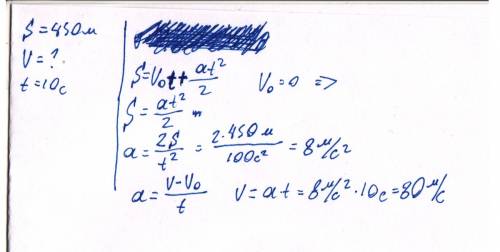 S=450м
V=?
t=10c
S=V₀t+at²/2 V₀=0 =>
S=at²/2
a=2S/t²=2·450м/100c²=8м/c²
a=V-V₀/t V=at=8м/c²·10c=80м/c